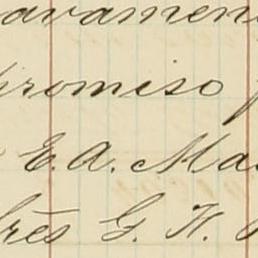 avamen
promiso
E. A. Ma
rés G. H.